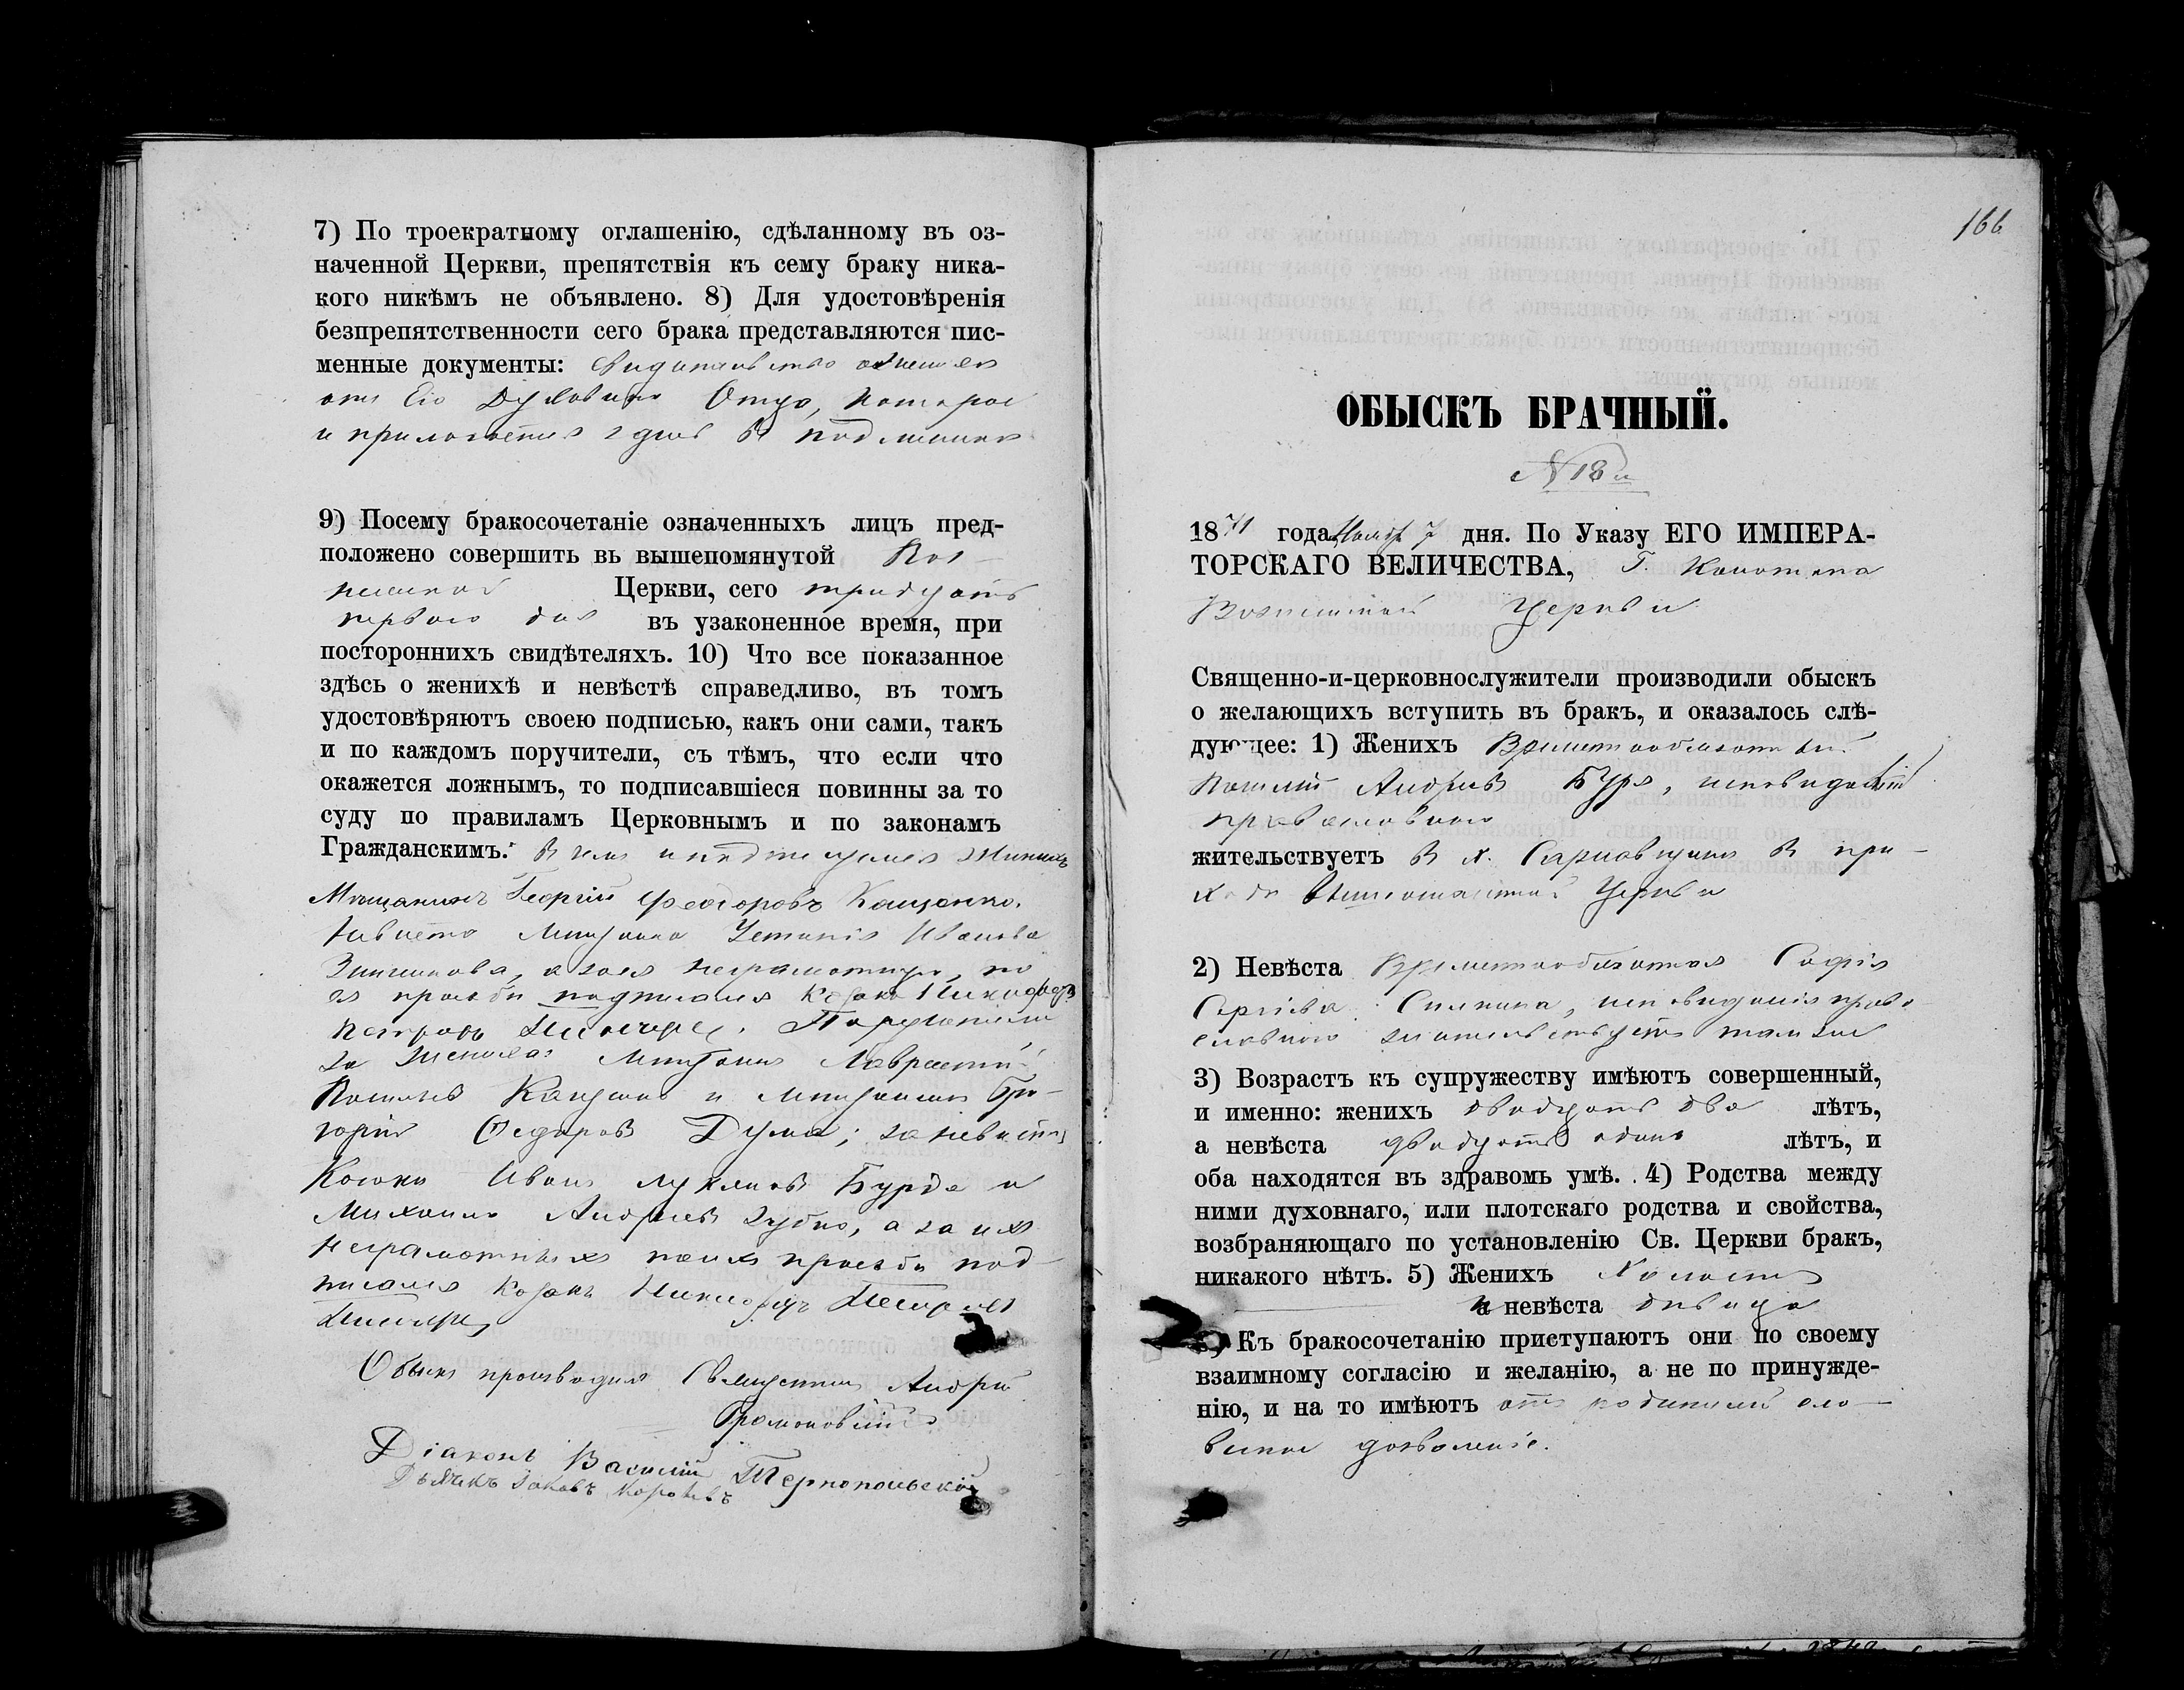 7) По троекратному оглашенію, сдѣланному въ оз-
наченной Церкви, препятствія къ сему браку ника-
кого никѣмъ не объявлено. 8) Для удостовѣренія
безпрепятственности сего брака представляются пис-
менные документы:
отъ Его Духовнаго Отца, которое
и прилагается
9) Посему бракосочетаніе означенныхъ лицъ пред-
положено совершить вь вышепомянутой Воз-
Церкви, сего тридцать
первого дня въ узаконенное время, при
постороннихъ свидѣтеляхъ. 10) Что все показанное
здѣсь о женихѣ и невѣстѣ справедливо, въ томъ
удостовѣряютъ своею подписью, какъ они сами, такъ
и по каждомъ поручители, съ тѣмъ, что если что
окажется ложнымъ, то подписавшіеся повинны за то
суду по правиламъ Церковнымъ и по законамъ
Гражданскимъ. В чемъ и подписуемся Женихъ
Мѣщанинъ Георгій Феодоровъ Кащенко.
Невѣста Мищанка Иванова
а за неграмотную, по
ея просьби подписался Козакъ Никифоръ
Петровъ Поручители
за жениха: Мищанинъ Лаврентій
и мищанинъ Гри-
горій Федоровъ Дума; за невѣсту
Козаки Иванъ Бурда и
Михаилъ Андреевъ Зубко, а за ихъ
неграмотныхъ по ихъ просьби под-
писался Козакъ Никифоръ Петровъ
Обыскъ производилъ Священникъ Андрей
Діаконъ Василій Тернопольскій
Дьячекъ Яковъ
166
ОБЫСКЪ БРАЧНЫЙ.
N 18й
1871 года, Ноябр 7 дня. По Указу ЕГО ИМПЕРА-
ТОРСКАГО ВЕЛИЧЕСТВА, Г. Конотопа
Вознесенской Церкви
Священно-и-церковнослужители производили обыскъ
о желающихъ вступить въ бракъ, и оказалось слѣ-
дующее: 1) Женихъ Временнообязанный
Андреевъ Бура, исповиданія
православного
жительствуетъ в х. в при-
ходи Церкви
2) Невѣста Временнообязанная Софія
Сергіева исповиданія право-
славного жительствуетъ тамже
3) Возрастъ къ супружеству имѣютъ совершенный,
и именно: женихъ двадцать два лѣтъ,
а невѣста двадцать одинъ лѣтъ, и
оба находятся въ здравомь умѣ. 4) Родства между
ними духовнаго, или плотскаго родства и свойства,
возбраняющаго по установленію Св. Церкви бракъ,
никакого нѣтъ. 5) Женихъ Холостъ
а невѣста дивица
Къ бракосочетанію приступаютъ они по своему
взаимному согласію и желанію, а не по принужде-
нію, и на то имѣютъ отъ родителей сло-
весное дозволеніе.